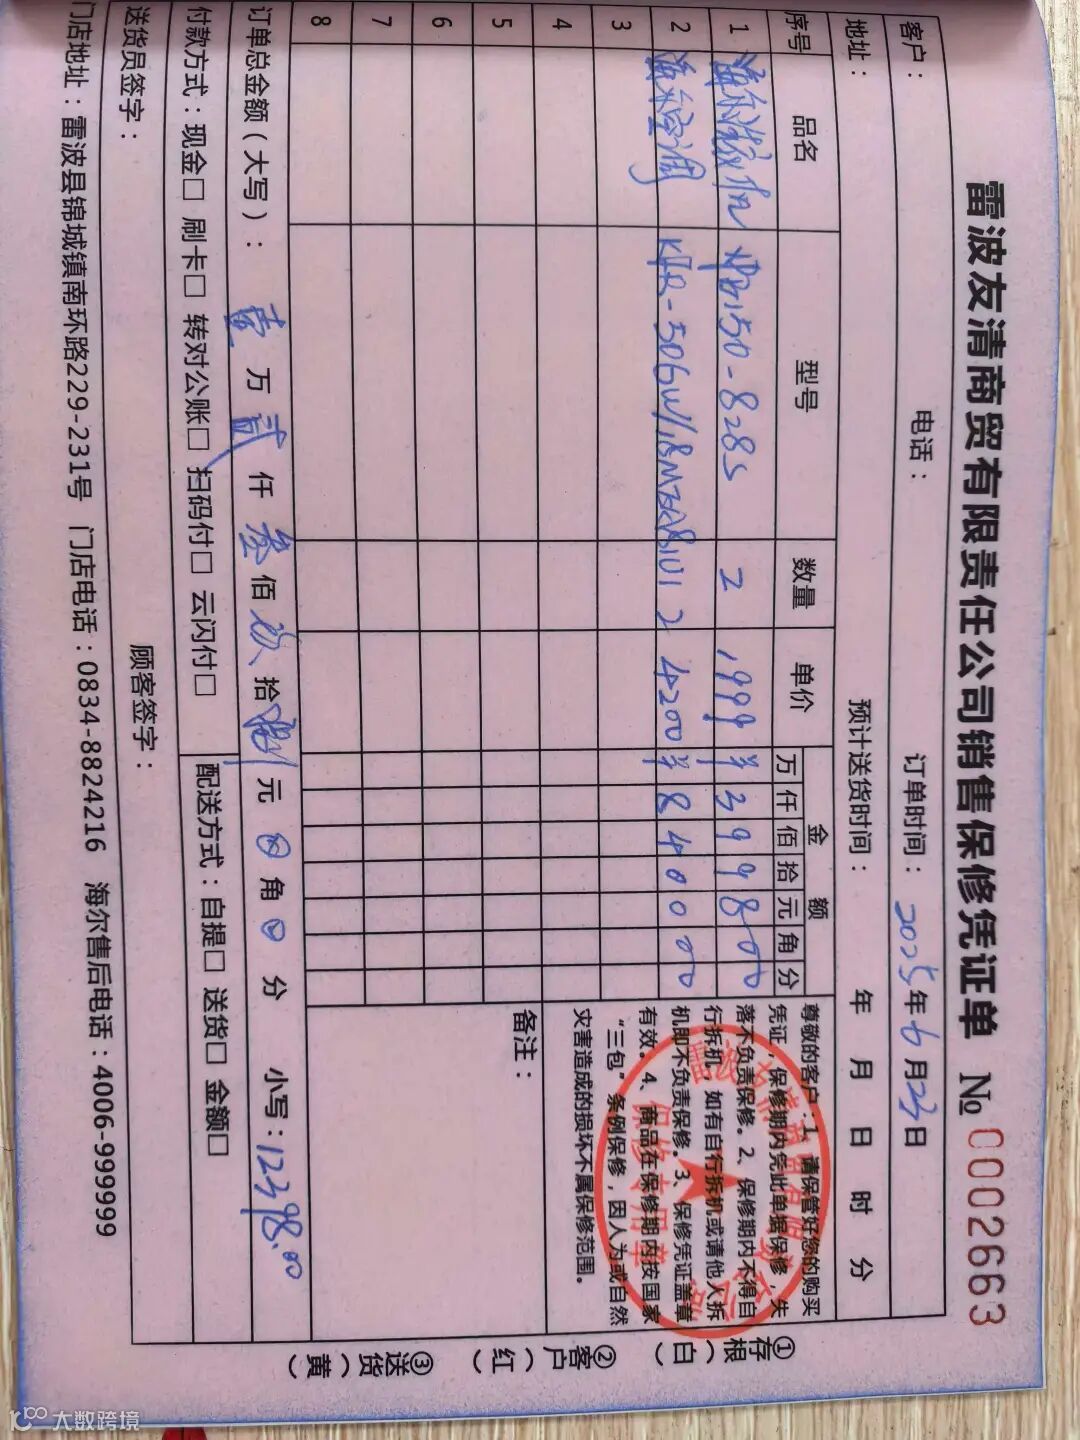 雷波友清商贸有限责任公司销售保修凭证单 № 0002663
客户： 电话： 订单时间：2025年6月23日
地址： 预计送货时间： 年 月 日 时 分
序号 品名 型号 数量 单价 金额
万 仟 佰 拾 元 角 分
1 海尔洗衣机 XPB150-828S 2 1999 ¥ 3 9 9 8 0 0
2 海尔空调 2 4200 ¥ 8 4 0 0 0 0
3
4
5
6
7
8
尊敬的客户：1、请保管好您的购买
凭证，保修期内凭此单据保修，失
落不负责保修。2、保修期内不得自
行拆机，如有自行拆机或请他人拆
机即不负责保修。3、保修凭证盖章
有效。4、商品在保修期内按国家
“三包”条例保修，因人为或自然
灾害造成的损坏不属保修范围。
备注：
订单总金额（大写）：壹万贰仟叁佰玖拾捌元⊗角 0 分 小写：12398.00
付款方式：现金□ 刷卡□ 转对公账□ 扫码付□ 云闪付□ 配送方式：自提□ 送货□ 金额□
送货员签字： 顾客签字：
门店地址：雷波县锦城镇南环路229-231号 门店电话：0834-8824216 海尔售后电话：4006-999999
①存根（白）
②客户（红）
③送货（黄）
保修专用章
大数跨境